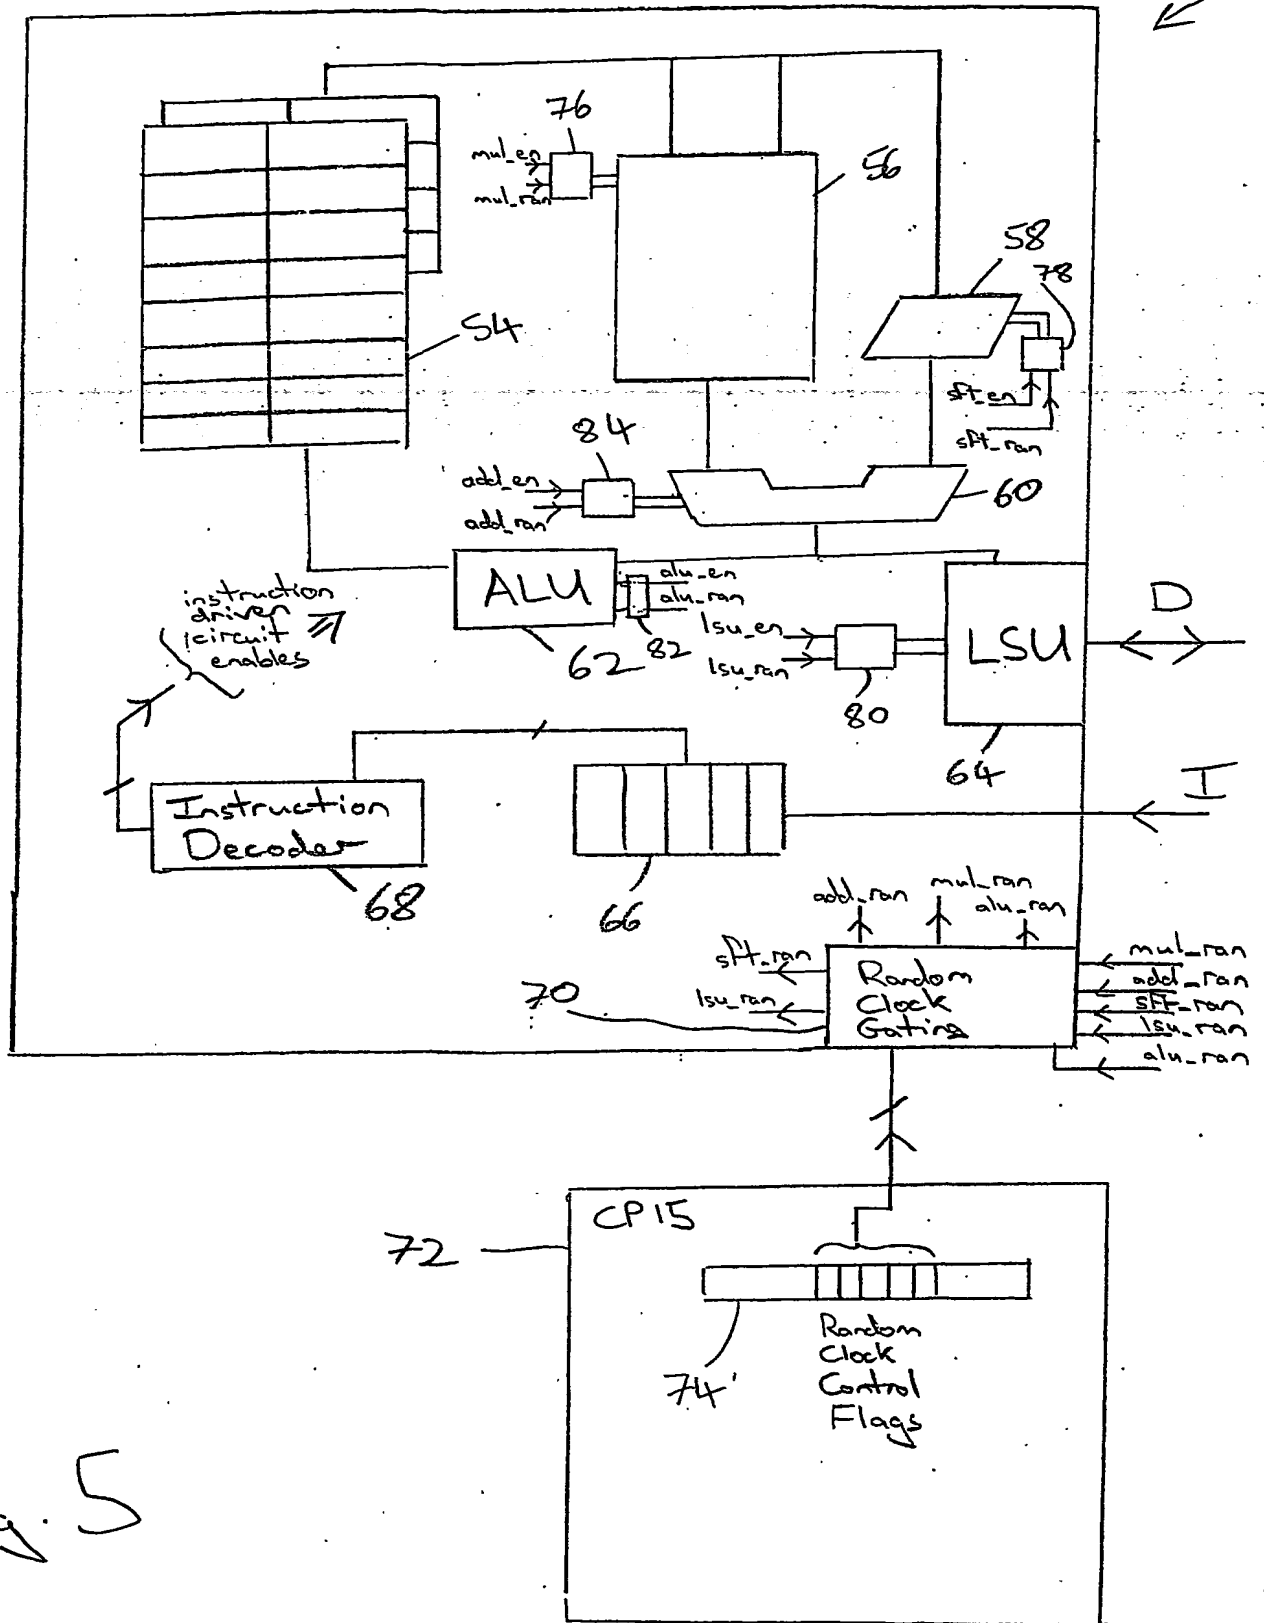 76
mul_en
mul_ran
56
58
78
54
sft_en
sft_ran
84
add_en
add_ran
60
ALU
alu_en
alu_ran
82
62
instruction
driven
circuit
enables
lsu_en
lsu_ran
80
LSU
64
D
I
Instruction
Decoder
68
66
add_ran
mul_ran
alu_ran
sft_ran
lsu_ran
70
Random
Clock
Gating
mul_ran
add_ran
sft_ran
lsu_ran
alu_ran
72
CP15
74
Random
Clock
Control
Flags
5